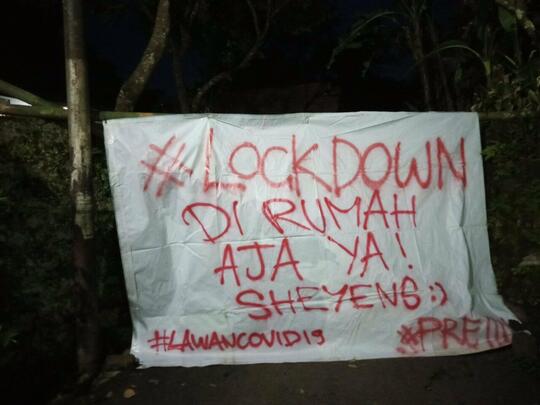 #LOCKDOWN
DI RUMAH
AJA YA!
SHEYENG:)
#LAWANCOVID19